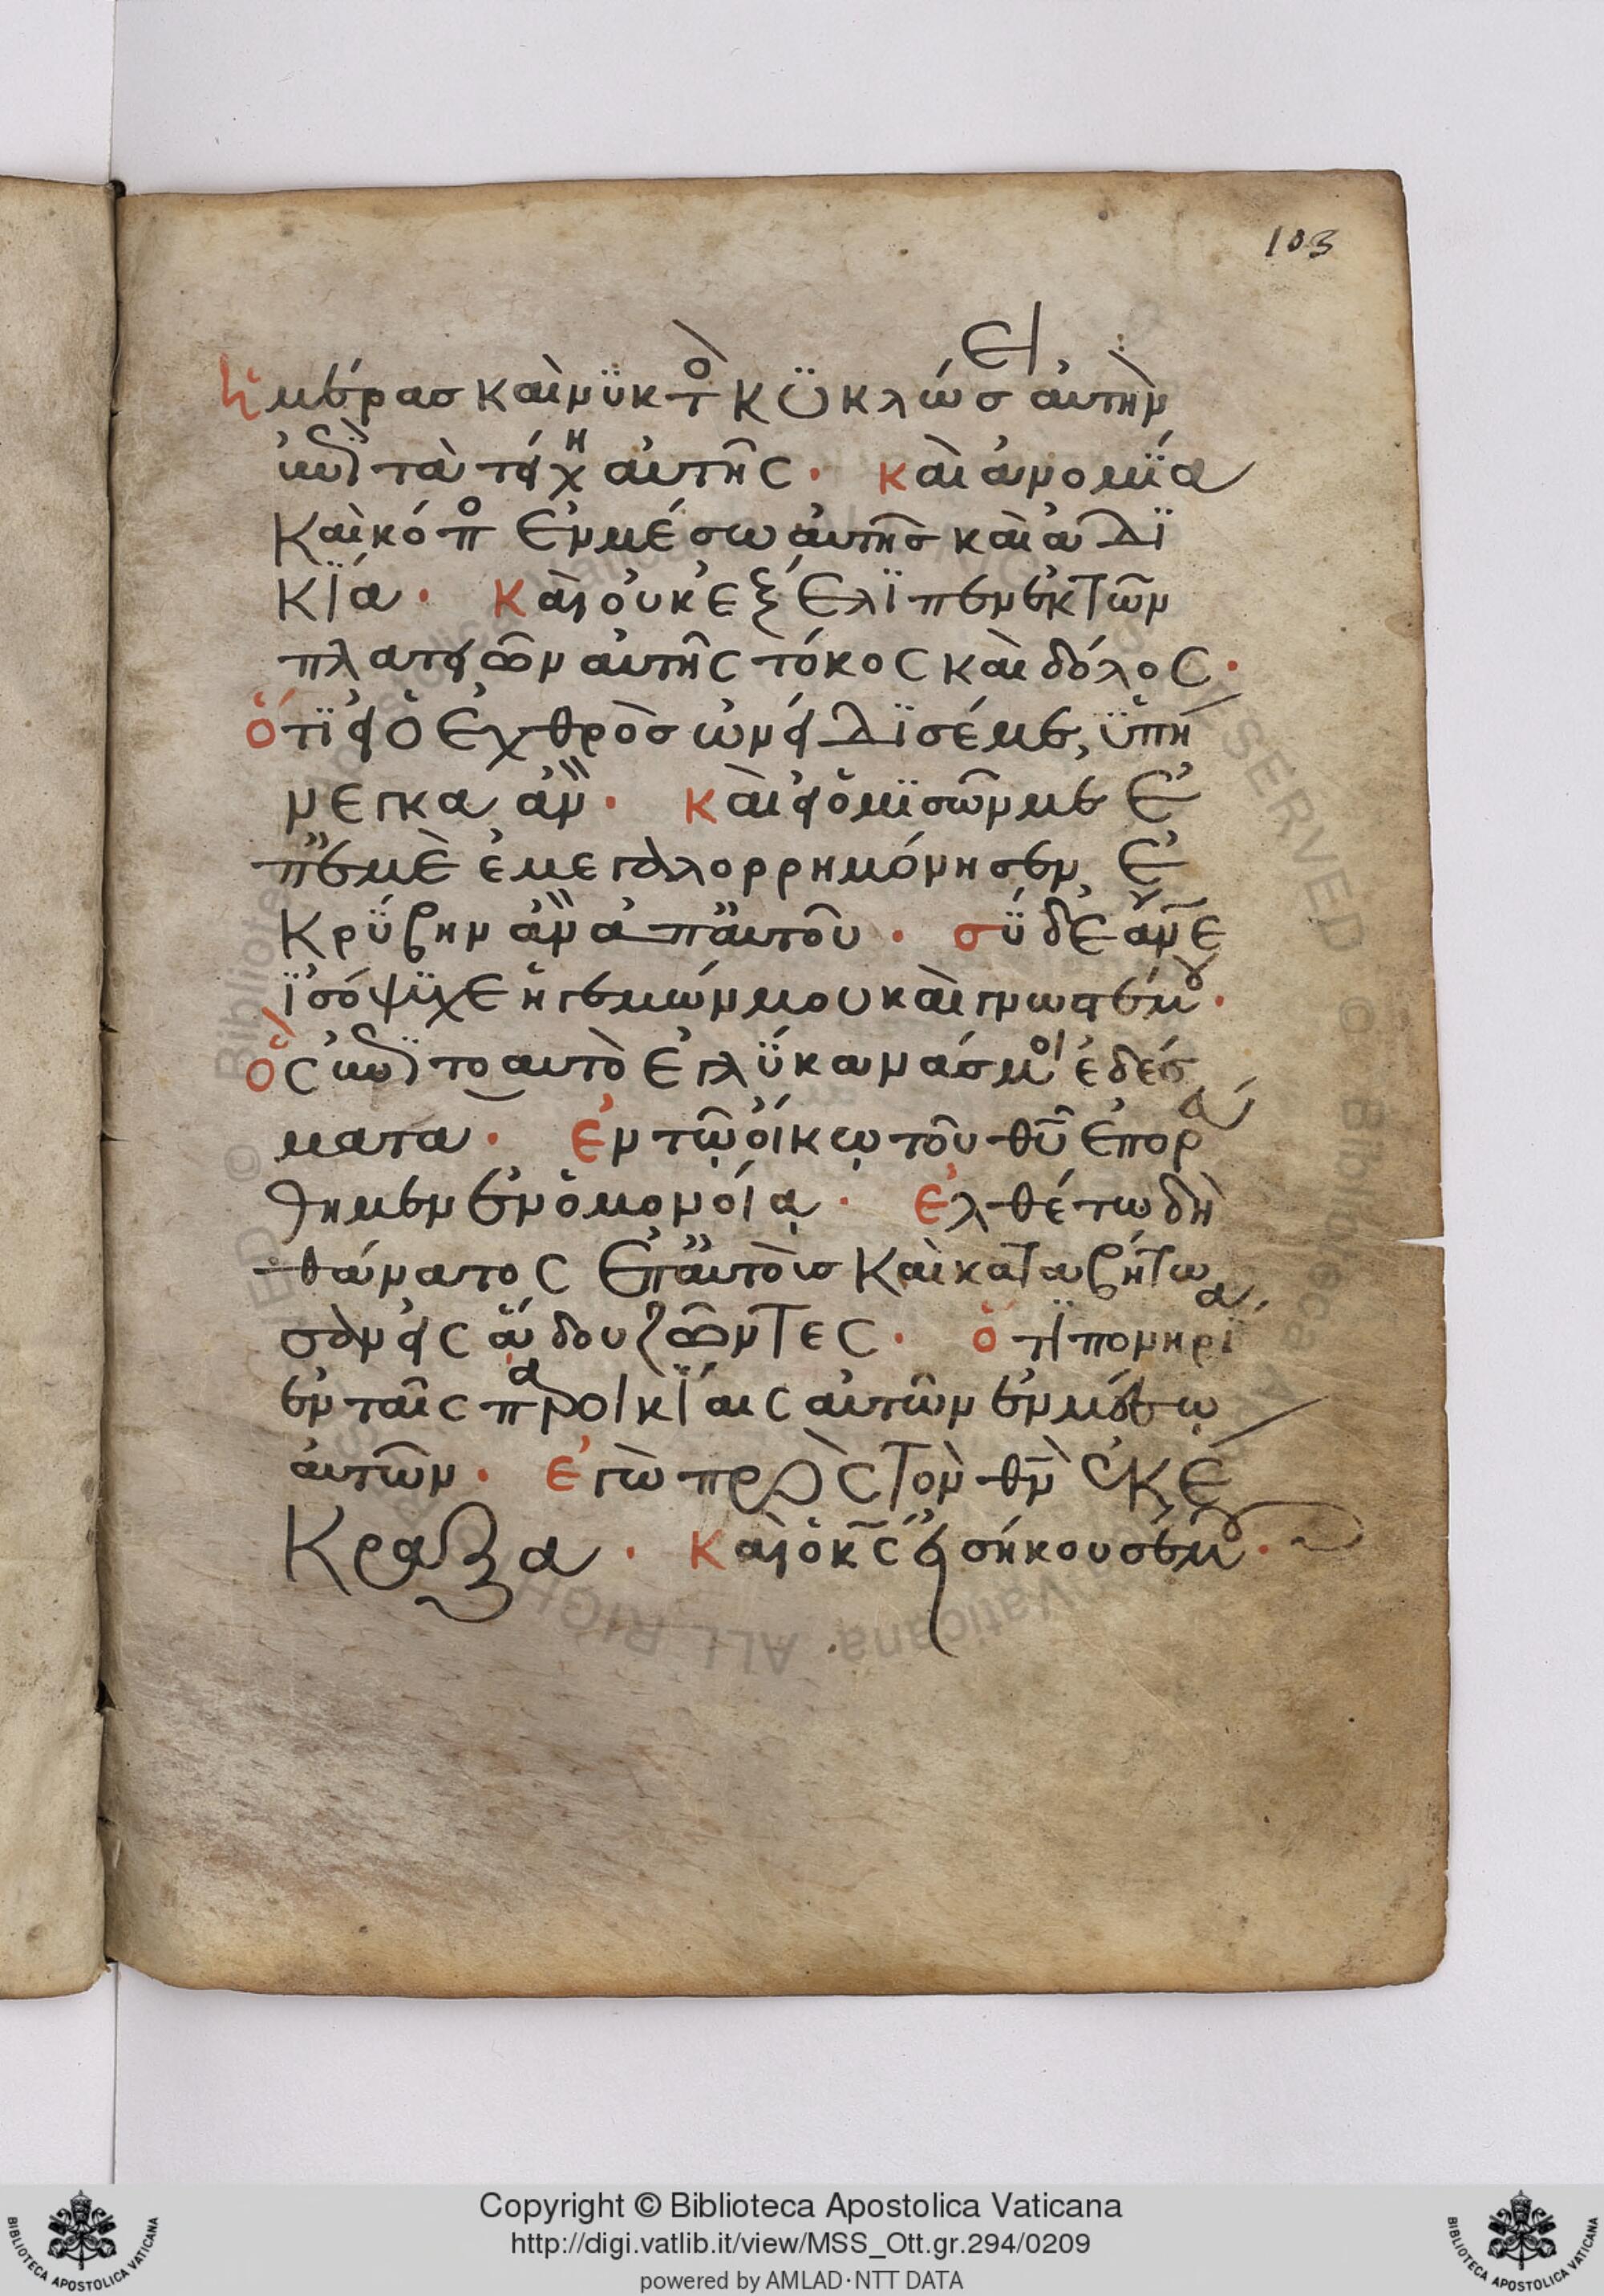 103
ἡμέρας καὶ νϋκτ(ὸς) κϋκλώσει αὐτὴν
ἐπὶ τὰ τείχη αὐτῆς· καὶ ἀνομΐα
καὶ κόπο ἐν μέσω αὐτῆς καὶ ἀδϊ
κΐα· καὶ οὐκ ἐξέλϊπεν ἐκ τῶν
πλατειῶν αὐτῆς τόκος καὶ δόλος·
ὅτϊ εἰ ὁ ἐχθρὸς ὠνείδϊσέ με, ϋπή
νεγκα ἂν· καὶ εἰ ὁ μϊσῶν με ἐ
π' ἐμὲ ἐμεγαλορρημόνησεν, ἐ
κρΰβην ἂν ἀπ' αὐτοῦ· σϋ δὲ ἄνε
ἰσόψϋχε ἡγεμών μου καὶ γνωστέ μου·
ὃς ἐπὶ το αυτὸ ἐγλΰκανάς μοι ἐδέσ
ματα· ἐν τῶ οἴκω τοῦ θῦ ἐπορεύ
θημεν ἐν ὁμονοία· ἐλθέτω δὴ
θάνατος ἐπ' αὐτοὺς καὶ καταβήτωσαν
εἰς ἅδου ζῶντες· ὅτι πονηρΐα
ἐν ταῖς παροικΐαις αὐτῶν ἐν μέσω
αὐτῶν· ἐγὼ πρὸς τὸν θν ἐκέ
κραξα· καὶ ὁ κς εἰσήκουσέ μου·
Copyright © Biblioteca Apostolica Vaticana
http://digi.vatlib.it/view/MSS_Ott.gr.294/0209
powered by AMLAD·NTT DATA
BIBLIOTECA APOSTOLICA VATICANA
BIBLIOTECA APOSTOLICA VATICANA